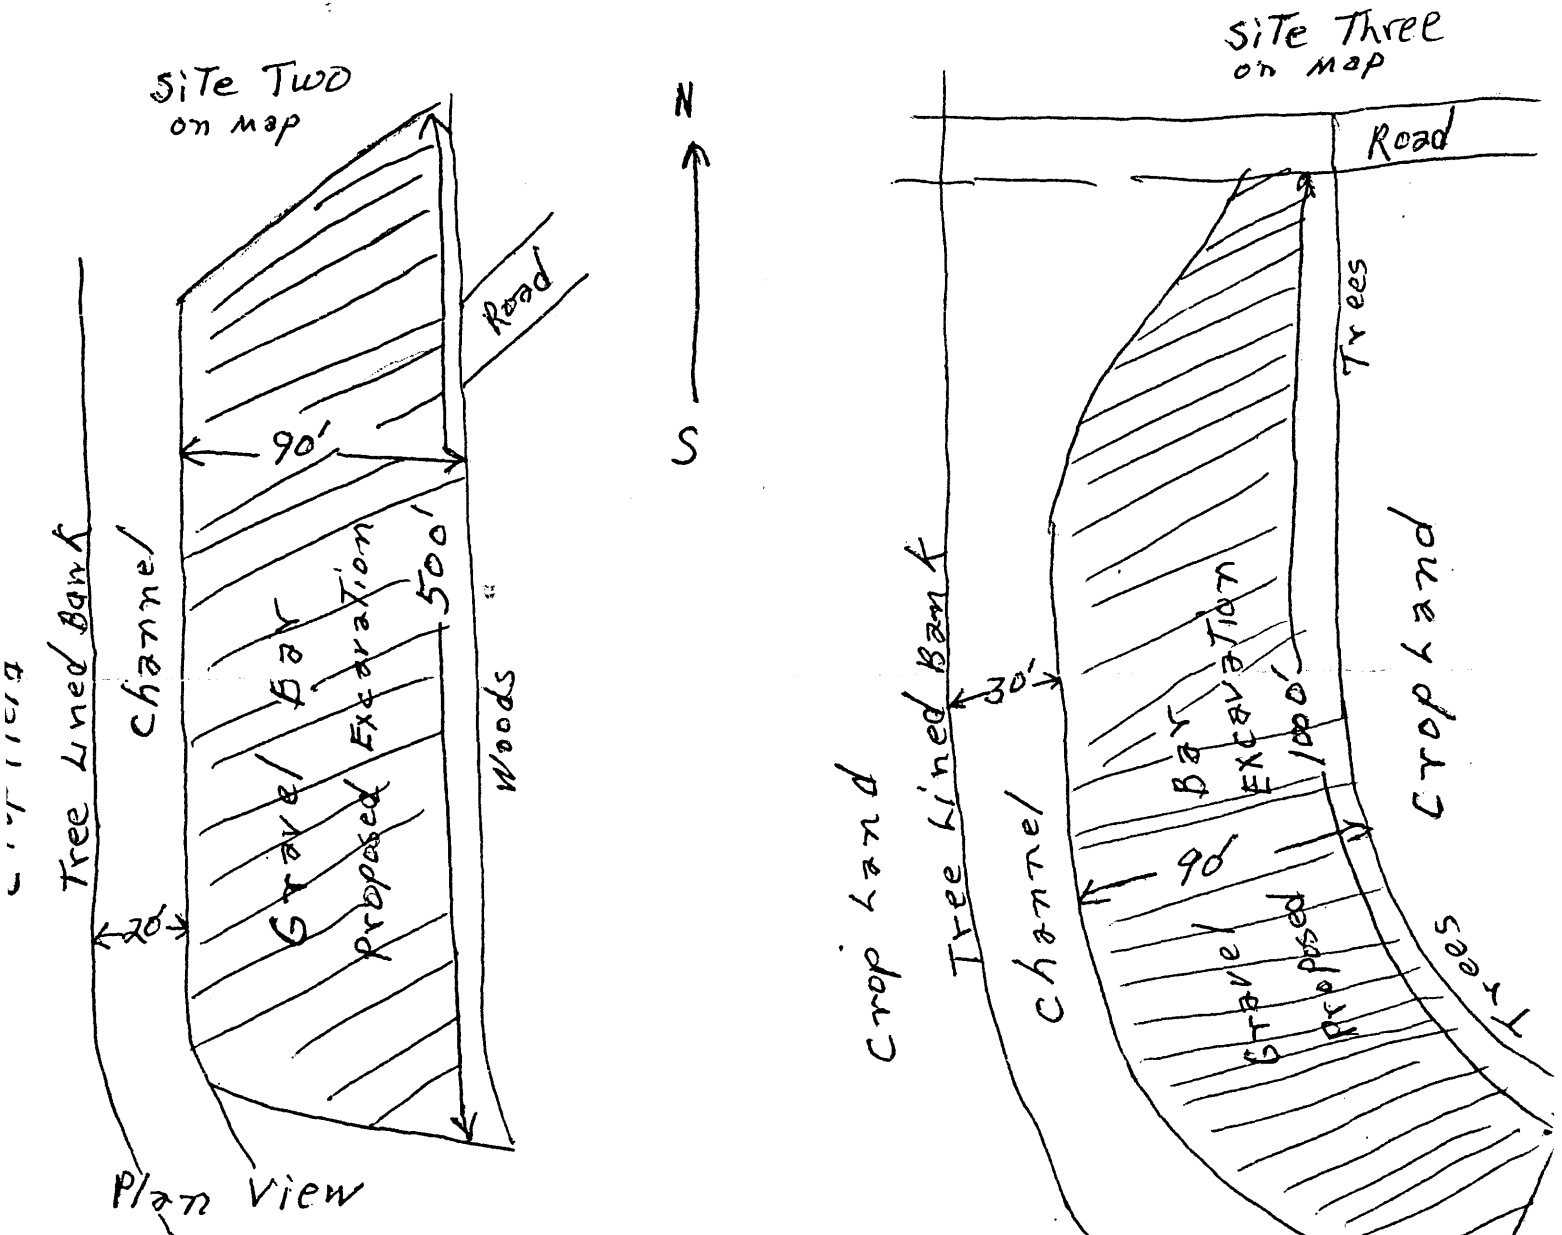 SiTe Two
on Map
N
S
Road
90'
500'
Tree Lined Bank
Channel
Gravel Bar
Proposed Excavation
Woods
20'
Plan View
SiTe Three
on Map
Road
Trees
Crop Land
Tree Lined Bank
30'
Channel
Gravel Bar
Proposed Excavation
1000'
90'
Crop Land
Trees